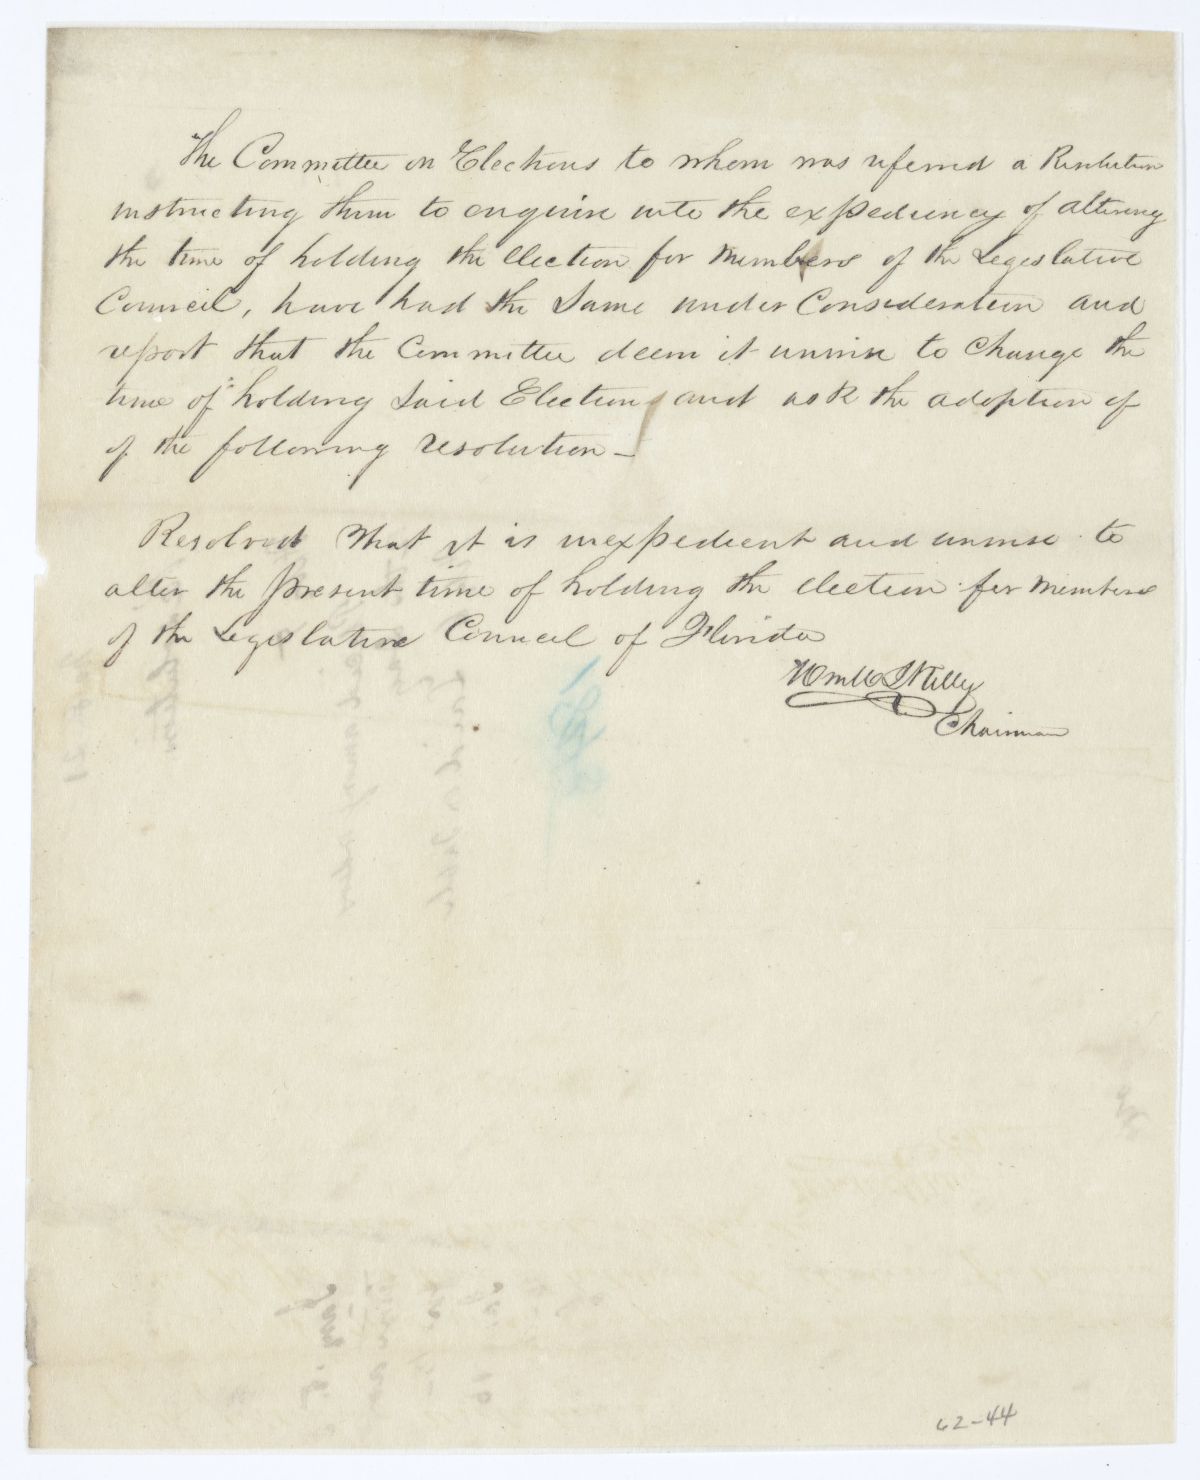 The Committee on Elections to whom was referred a Resolution
instructing them to enquire into the expediency of altering
the time of holding the election for members of the Legislative
Council, have had the Same under Consideration and
report that the Committee deem it unwise to Change the
time of holding Said Election and ask the adoption of
of the following resolution —
Resolved That it is inexpedient and unwise to
alter the present time of holding the election for members
of the Legislative Council of Florida
Chairman
62-44